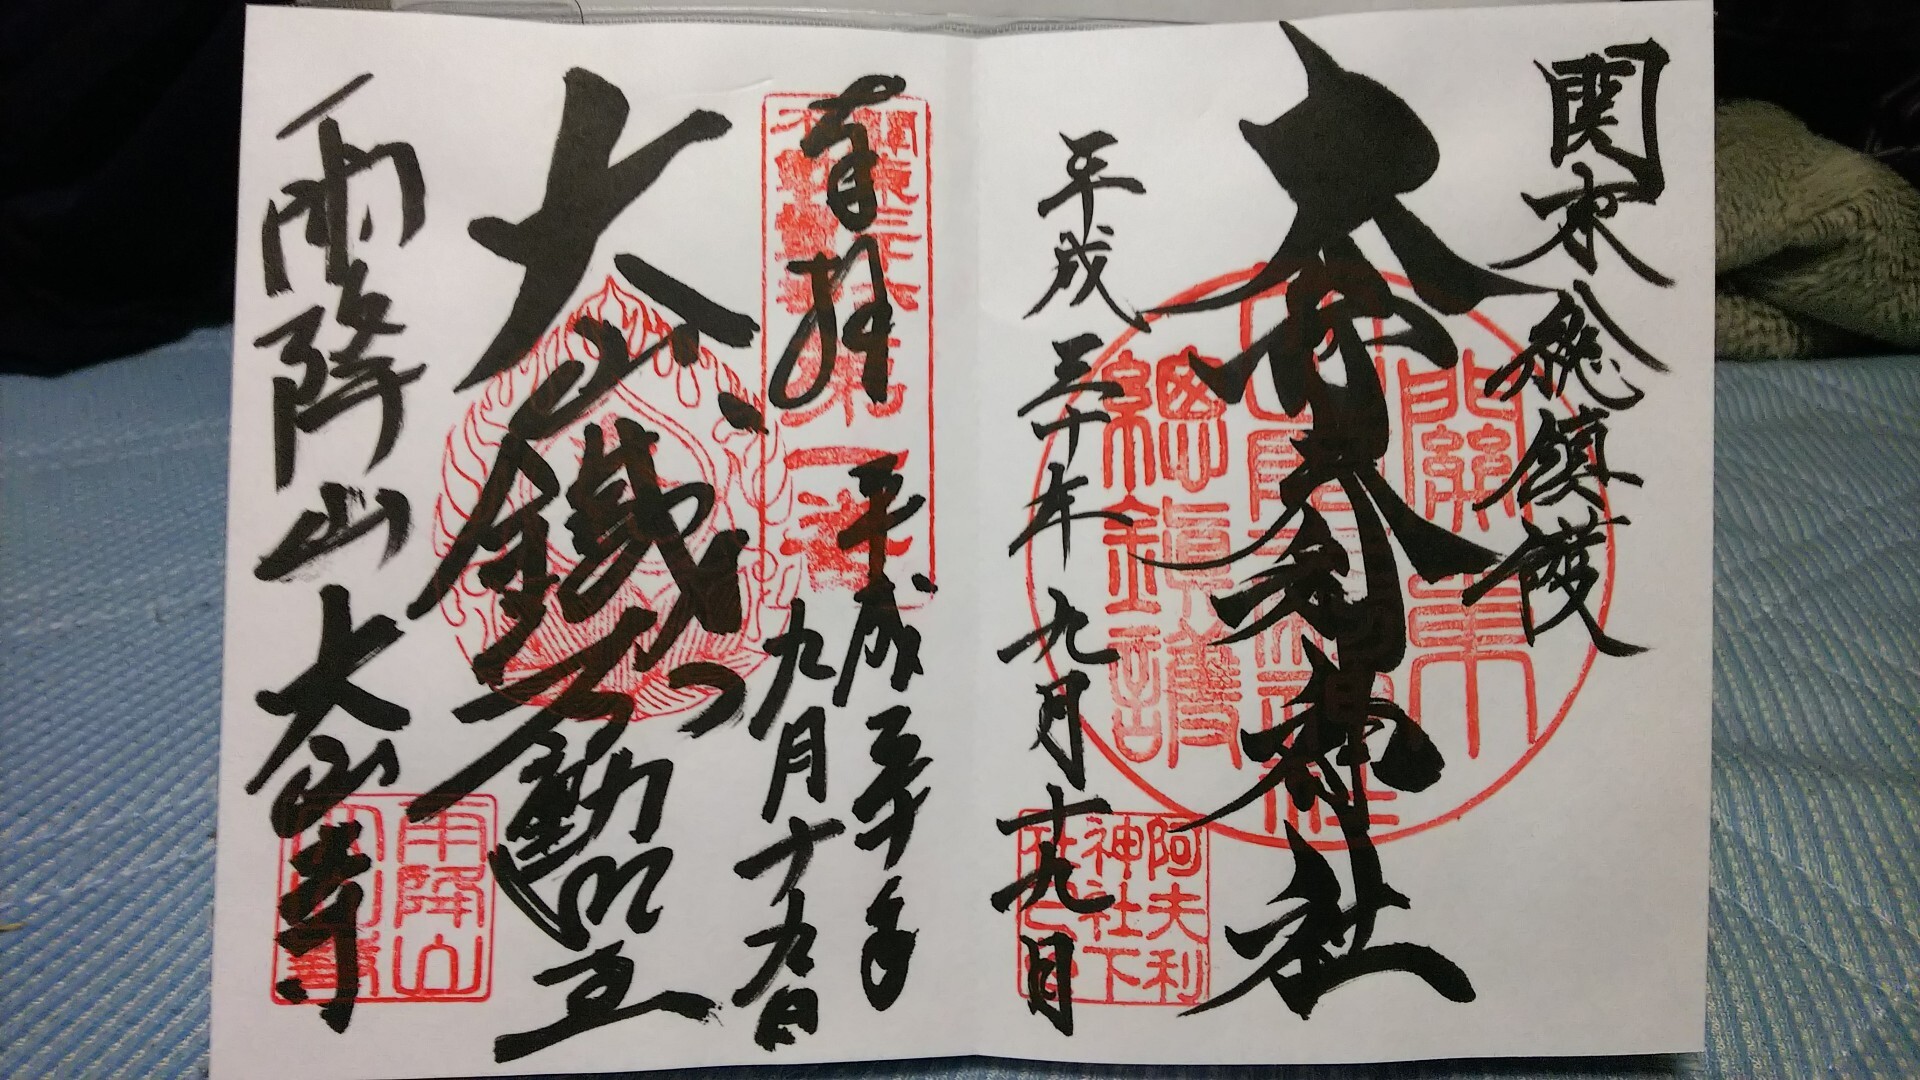 関東総鎮護
大山阿夫利神社
平成三十年九月十九日
關東
總鎮護
阿夫利
神社下
社
奉拝
平成三十年
九月十九日
關東三十六
不動霊場
第一番
大山鐵不動明王
雨降山大山寺
雨降山